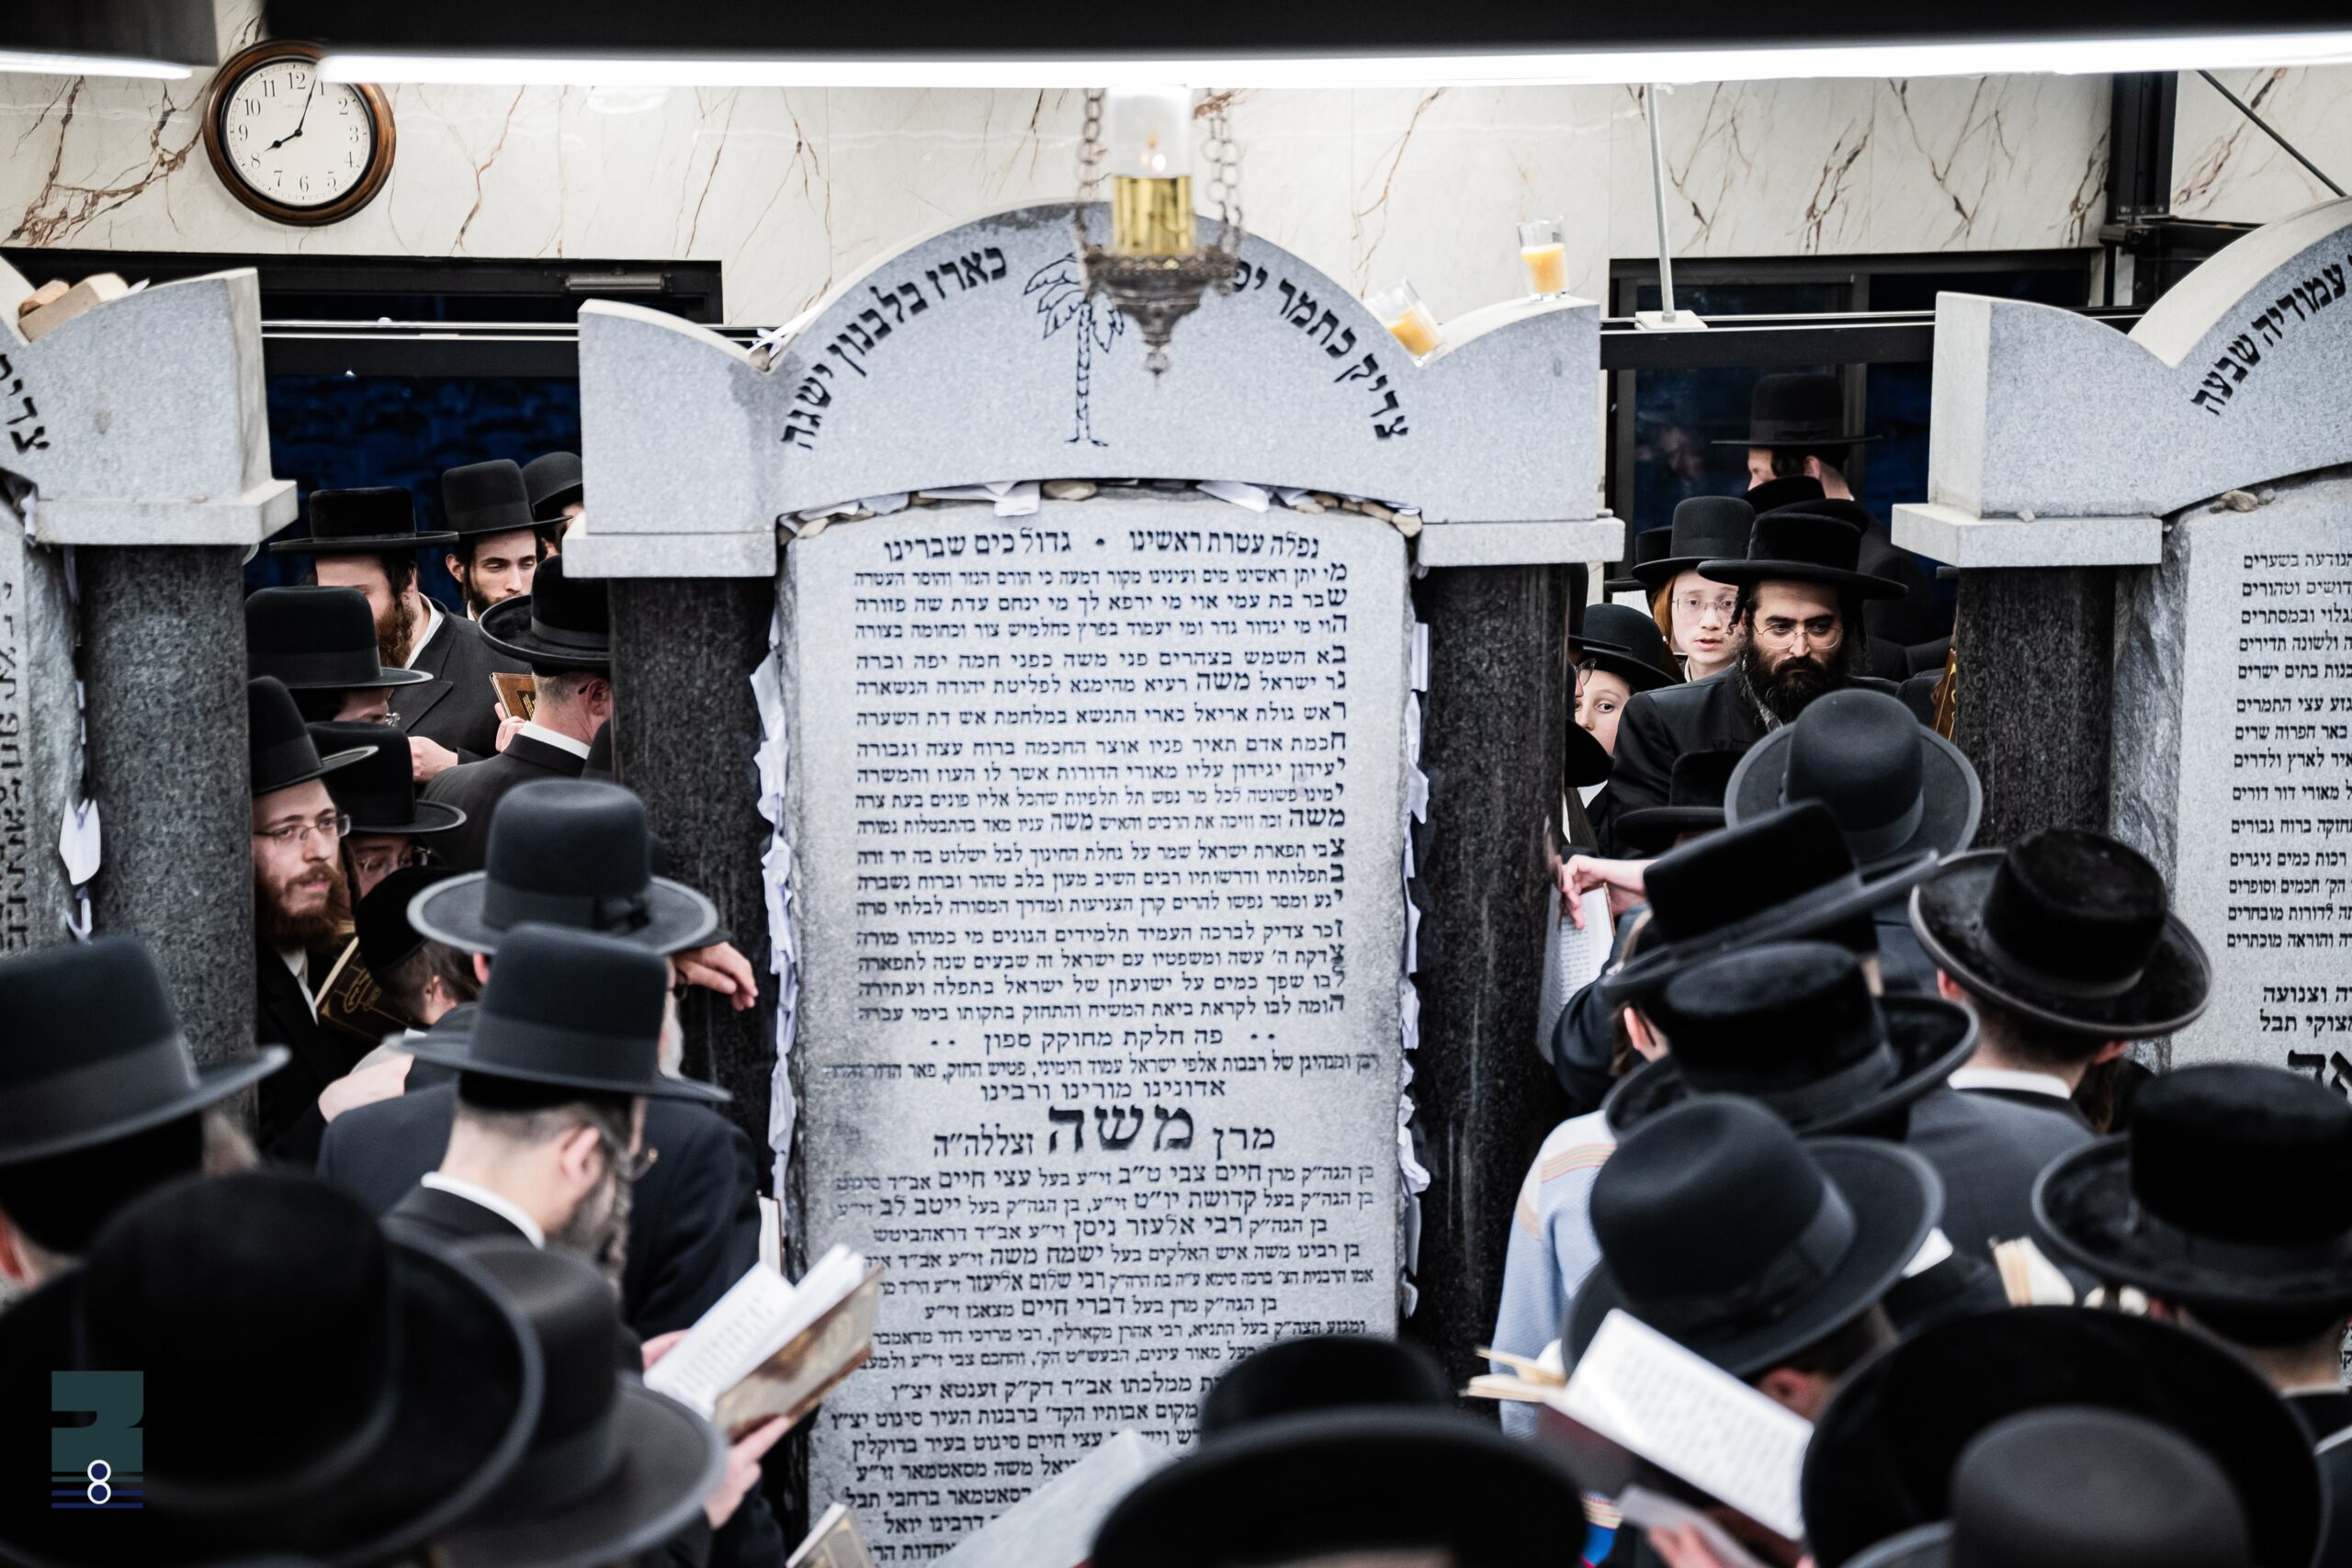 צדיק כתמר
כארז בלבנון ישגה
נפלה עטרת ראשינו • גדול כים שברינו
מי יתן ראשינו מים ועינינו מקור דמעה כי הורם הנזר והוסר העטרה
שבר בת עמי אוי מי ירפא לך מי ינחם עדת שה פזורה
הוי מי יגדור גדר ומי יעמוד בפרץ כחלמיש צור וכחומה בצורה
בא השמש בצהרים פני משה כפני חמה יפה וברה
נר ישראל משה רעיא מהימנא לפליטת יהודה הנשארה
ראש גולת אריאל כארי התנשא במלחמת אש דת השערה
חכמת אדם תאיר פניו אוצר החכמה ברוח עצה וגבורה
יעידון יגידון עליו מאורי הדורות אשר לו העוז והמשרה
ימינו פשוטה לכל מר נפש תל תלפיות שהכל אליו פונים בעת צרה
משה זכה וזיכה את הרבים והאיש משה עניו מאד בהתבטלות גמורה
צבי תפארת ישראל שמר על נחלת החינוך לבל ישלוט בה יד זרה
בתפלותיו ודרשותיו רבים השיב מעון בלב טהור וברוח נשברה
יגע ומסר נפשו להרים קרן הצניעות ומדרך המסורה לבלתי סרה
זכר צדיק לברכה העמיד תלמידים הגונים מי כמוהו מורה
צדקת ה' עשה ומשפטיו עם ישראל זה שבעים שנה לתפארה
לבו שפך כמים על ישועתן של ישראל בתפלה ועתירה
הומה לבו לקראת ביאת המשיח והתחזק בתקותו בימי עכרה
פה חלקת מחוקק ספון
ומנהיגן של רבבות אלפי ישראל עמוד הימיני, פטיש החזק, פאר הדור
אדונינו מורינו ורבינו
מרן משה זצללה"ה
בן הגה"ק מרן חיים צבי ט"ב זי"ע בעל עצי חיים אב"ד סיגוט
בן הגה"ק בעל קדושת יו"ט זי"ע, בן הגה"ק בעל ייטב לב זי"ע
בן הגה"ק רבי אלעזר ניסן זי"ע אב"ד דראהביטש
בן רבינו משה איש האלקים בעל ישמח משה זי"ע אב"ד
אמו הרבנית הצ' ברכה סימא ע"ה בת הרה"ק רבי שלום אליעזר זי"ע הי"ד
בן הגה"ק מרן בעל דברי חיים מצאנז זי"ע
ומגזע הצה"ק בעל התניא, רבי אהרן מקארלין, רבי מרדכי דוד
בעל מאור עינים, הבעש"ט הק', והחכם צבי זי"ע
ממלכתו אב"ד דק"ק זענטא יצ"ו
מקום אבותיו הקד' ברבנות העיר סיגוט יצ"ו
עצי חיים סיגוט בעיר ברוקלין
משה מסאטמאר זי"ע
דסאטמאר ברחבי תבל
דרבינו יואל
עמודיה שבעה
בשערים
וטהורים
ובמסתרים
ולשונה תדירים
בתים ישרים
גזע עצי התמרים
באר חפרוה שרים
לארץ ולדרים
מאורי דור דורים
ברוח גבורים
כמים ניגרים
הק' חכמים וסופרים
לדורות מובחרים
והוראה מוכתרים
וצנועה
מצוקי תבל
12
1
2
3
4
5
6
7
8
9
10
11
8